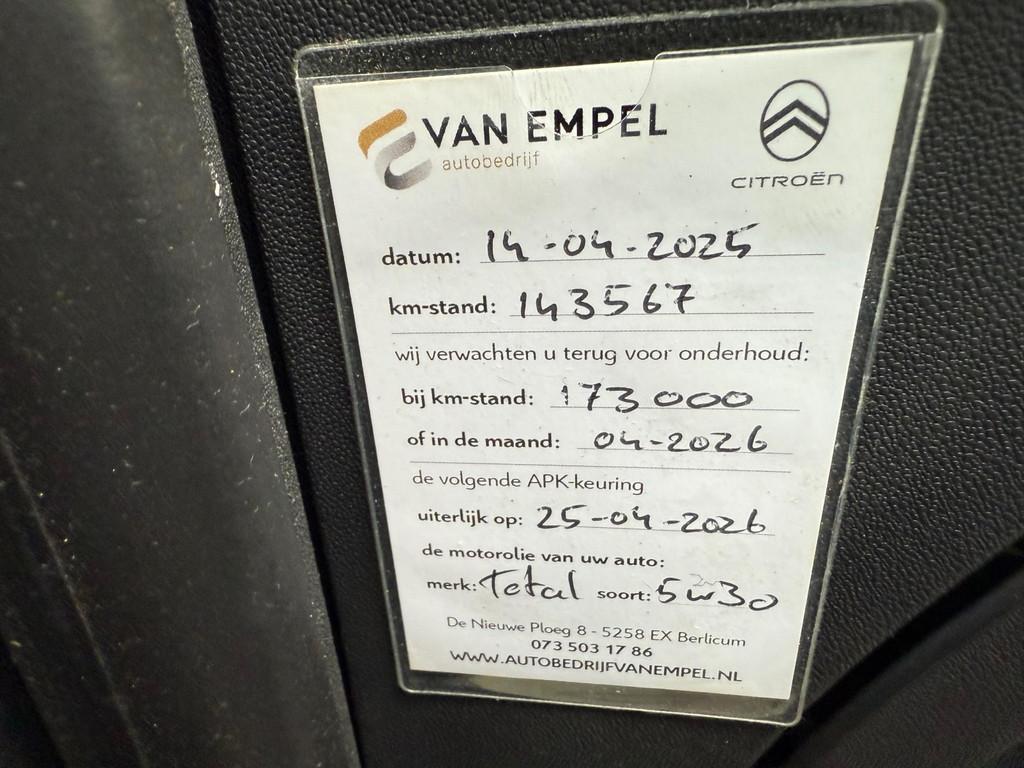 VAN EMPEL
autobedrijf
CITROËN
datum: 14-04-2025
km-stand: 143567
wij verwachten u terug voor onderhoud:
bij km-stand: 173000
of in de maand: 04-2026
de volgende APK-keuring
uiterlijk op: 25-04-2026
de motorolie van uw auto:
merk: Total soort: 5w30
De Nieuwe Ploeg 8 - 5258 EX Berlicum
073 503 17 86
WWW.AUTOBEDRIJFVANEMPEL.NL